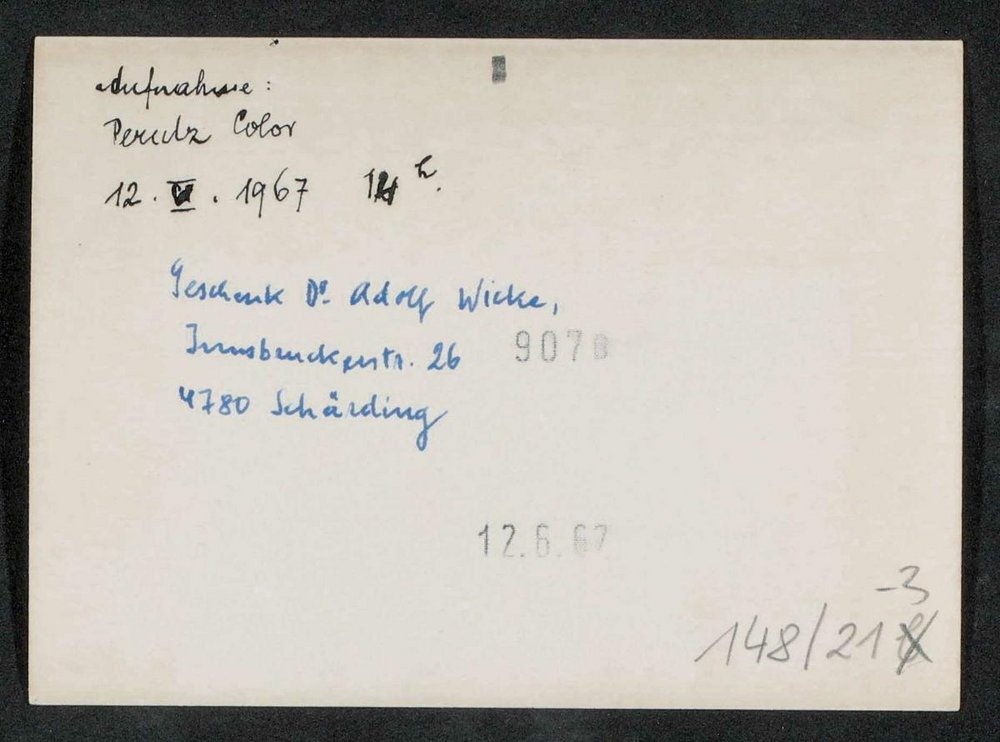 Aufnahme:
Perutz Color
12. V. 1967 14 h.
Geschenk Dr. Adolf Wicke,
Innsbruckerstr. 26
9078
4780 Schärding
12.6.67
-3
148/21